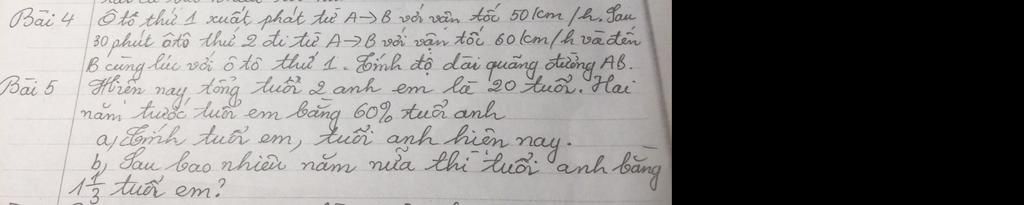 Bài 4 Ô tô thứ 1 xuất phát từ A→B với vận tốc 50km/h. Sau
30 phút ôtô thứ 2 đi từ A→B với vận tốc 60km/h và đến
B cùng lúc với ô tô thứ 1. Tính độ dài quãng đường AB.
Bài 5 Hiện nay tổng tuổi 2 anh em là 20 tuổi. Hai
năm trước tuổi em bằng 60% tuổi anh
a, Tính tuổi em, tuổi anh hiện nay.
b, Sau bao nhiêu năm nữa thì tuổi anh bằng
1 1/3 tuổi em?